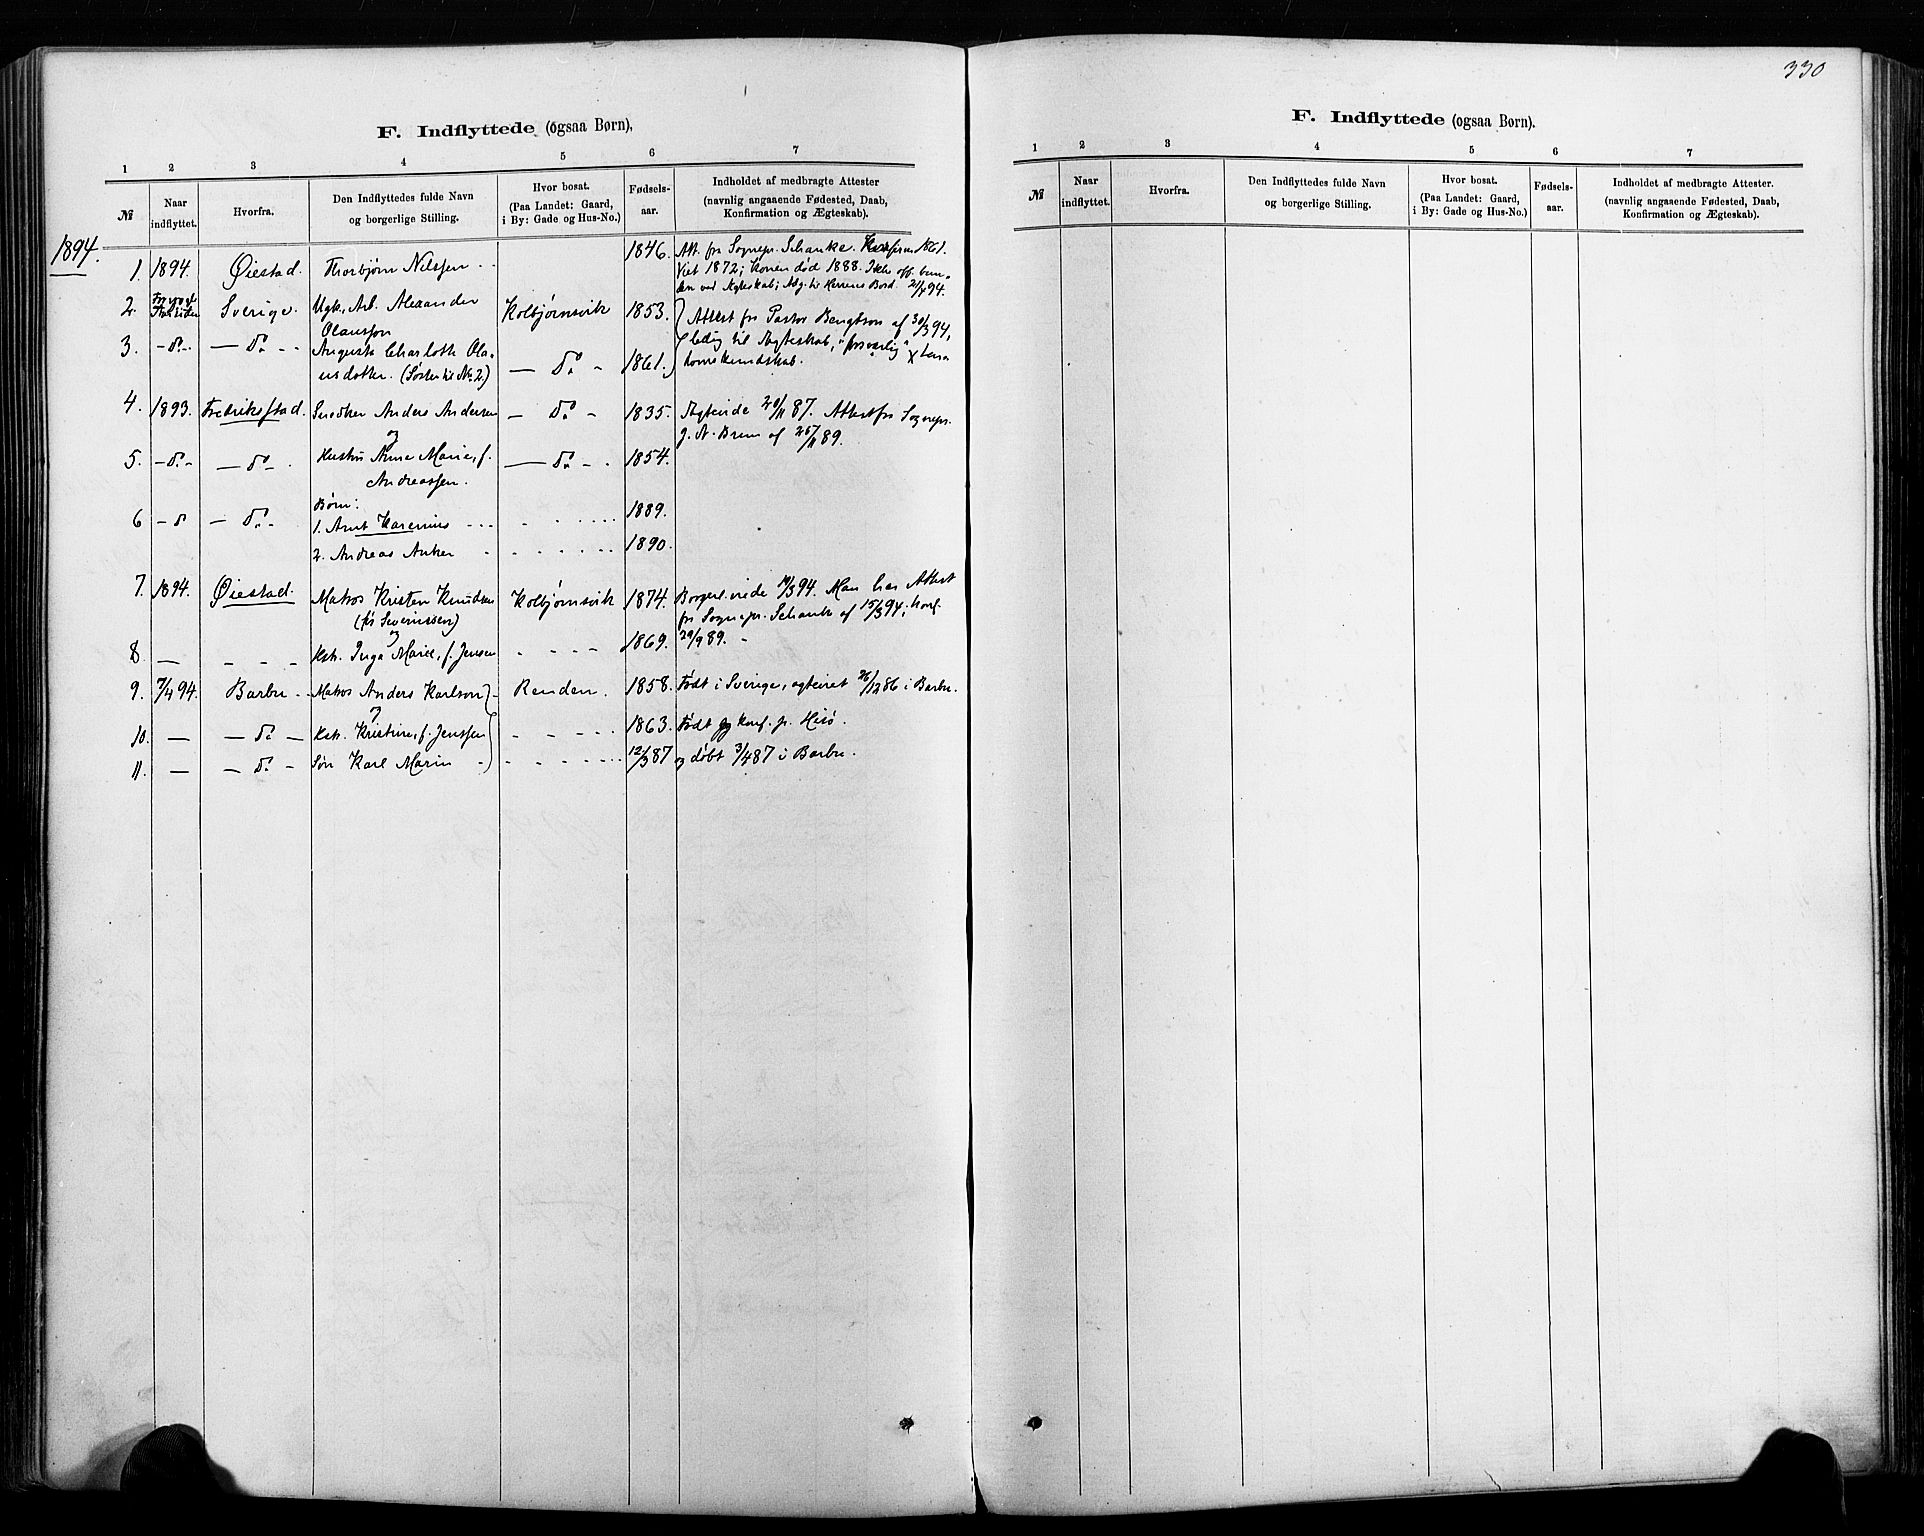 F. Indflyttede (ogsaa Børn),
1 2 3 4 5 6 7
№ Naar indflyttet. Hvorfra. Den Indflyttedes fulde Navn og borgerlige Stilling. Hvor bosat. (Paa Landet: Gaard, i By: Gade og Hus-No.) Fødsels-aar. Indholdet af medbragte Attester (navnlig angaaende Fødested, Daab, Konfirmation og Ægteskab).
1894.
1. 1894. Øiestad. Thorbjørn Nilssen 1846. Att. fra Sognepr. Schanke. Konfirm 1861.
Viet 1872; Konen død 1888. Ikke off. bun-
den ved Ægteskab; Adg. til Herrens Bord. 2/4 94.
2. Sverige. Ugk. Arb. Alexander Kolbjørnsvik 1853.
Olausson Attest fra Pastor Bengtson af 30/3 94,
3. - do - - do - Augusta Charlotte Ola- ledig til Ægteskab, "forsvarlig"
usdotter. (Søster til No 2.) - do - 1861. domskundskab.
4. 1893. Fredriksstad. Snedker Anders Andersen - do - 1835. Ægteviede 20/11 87. Attest fra Sognepr.
og J. N. Bruun af 25/11 89.
5. - do - - do - Hustru Anna Marie, f. - do - 1854.
Andreassen.
Børn:
6 - do - do - 1. Arnt Karenius 1889.
2. Andreas Anker 1890.
7. 1894. Øiestad. Matros Kristen Knudsen Kolbjørnsvik 1874. Borgerl. viede 19/3 94. Man har Attest
(før Severinssen) fra Sognepr. Schanke af 15/3 94; konf.
og 29/9 89.
8 Hstr. Inga Marie, f. Jensen 1869.
9. 7/4 94. Barbu Matros Anders Karlson Renden. 1858. Født i Sverige, ægteviet 26/12 86 i Barbu.
og
10. - do - Hstr. Kristine, f. Jenssen 1863. Født og konf. p. Hisø.
11. - do - Søn Karl Marin 12/3 87 og døbt 3/4 87 i Barbu.
330
F. Indflyttede (ogsaa Børn).
1 2 3 4 5 6 7
№ Naar indflyttet. Hvorfra. Den Indflyttedes fulde Navn og borgerlige Stilling. Hvor bosat. (Paa Landet: Gaard, i By: Gade og Hus-No.) Fødsels-aar. Indholdet af medbragte Attester. (navnlig angaaende Fødested, Daab, Konfirmation og Ægteskab).